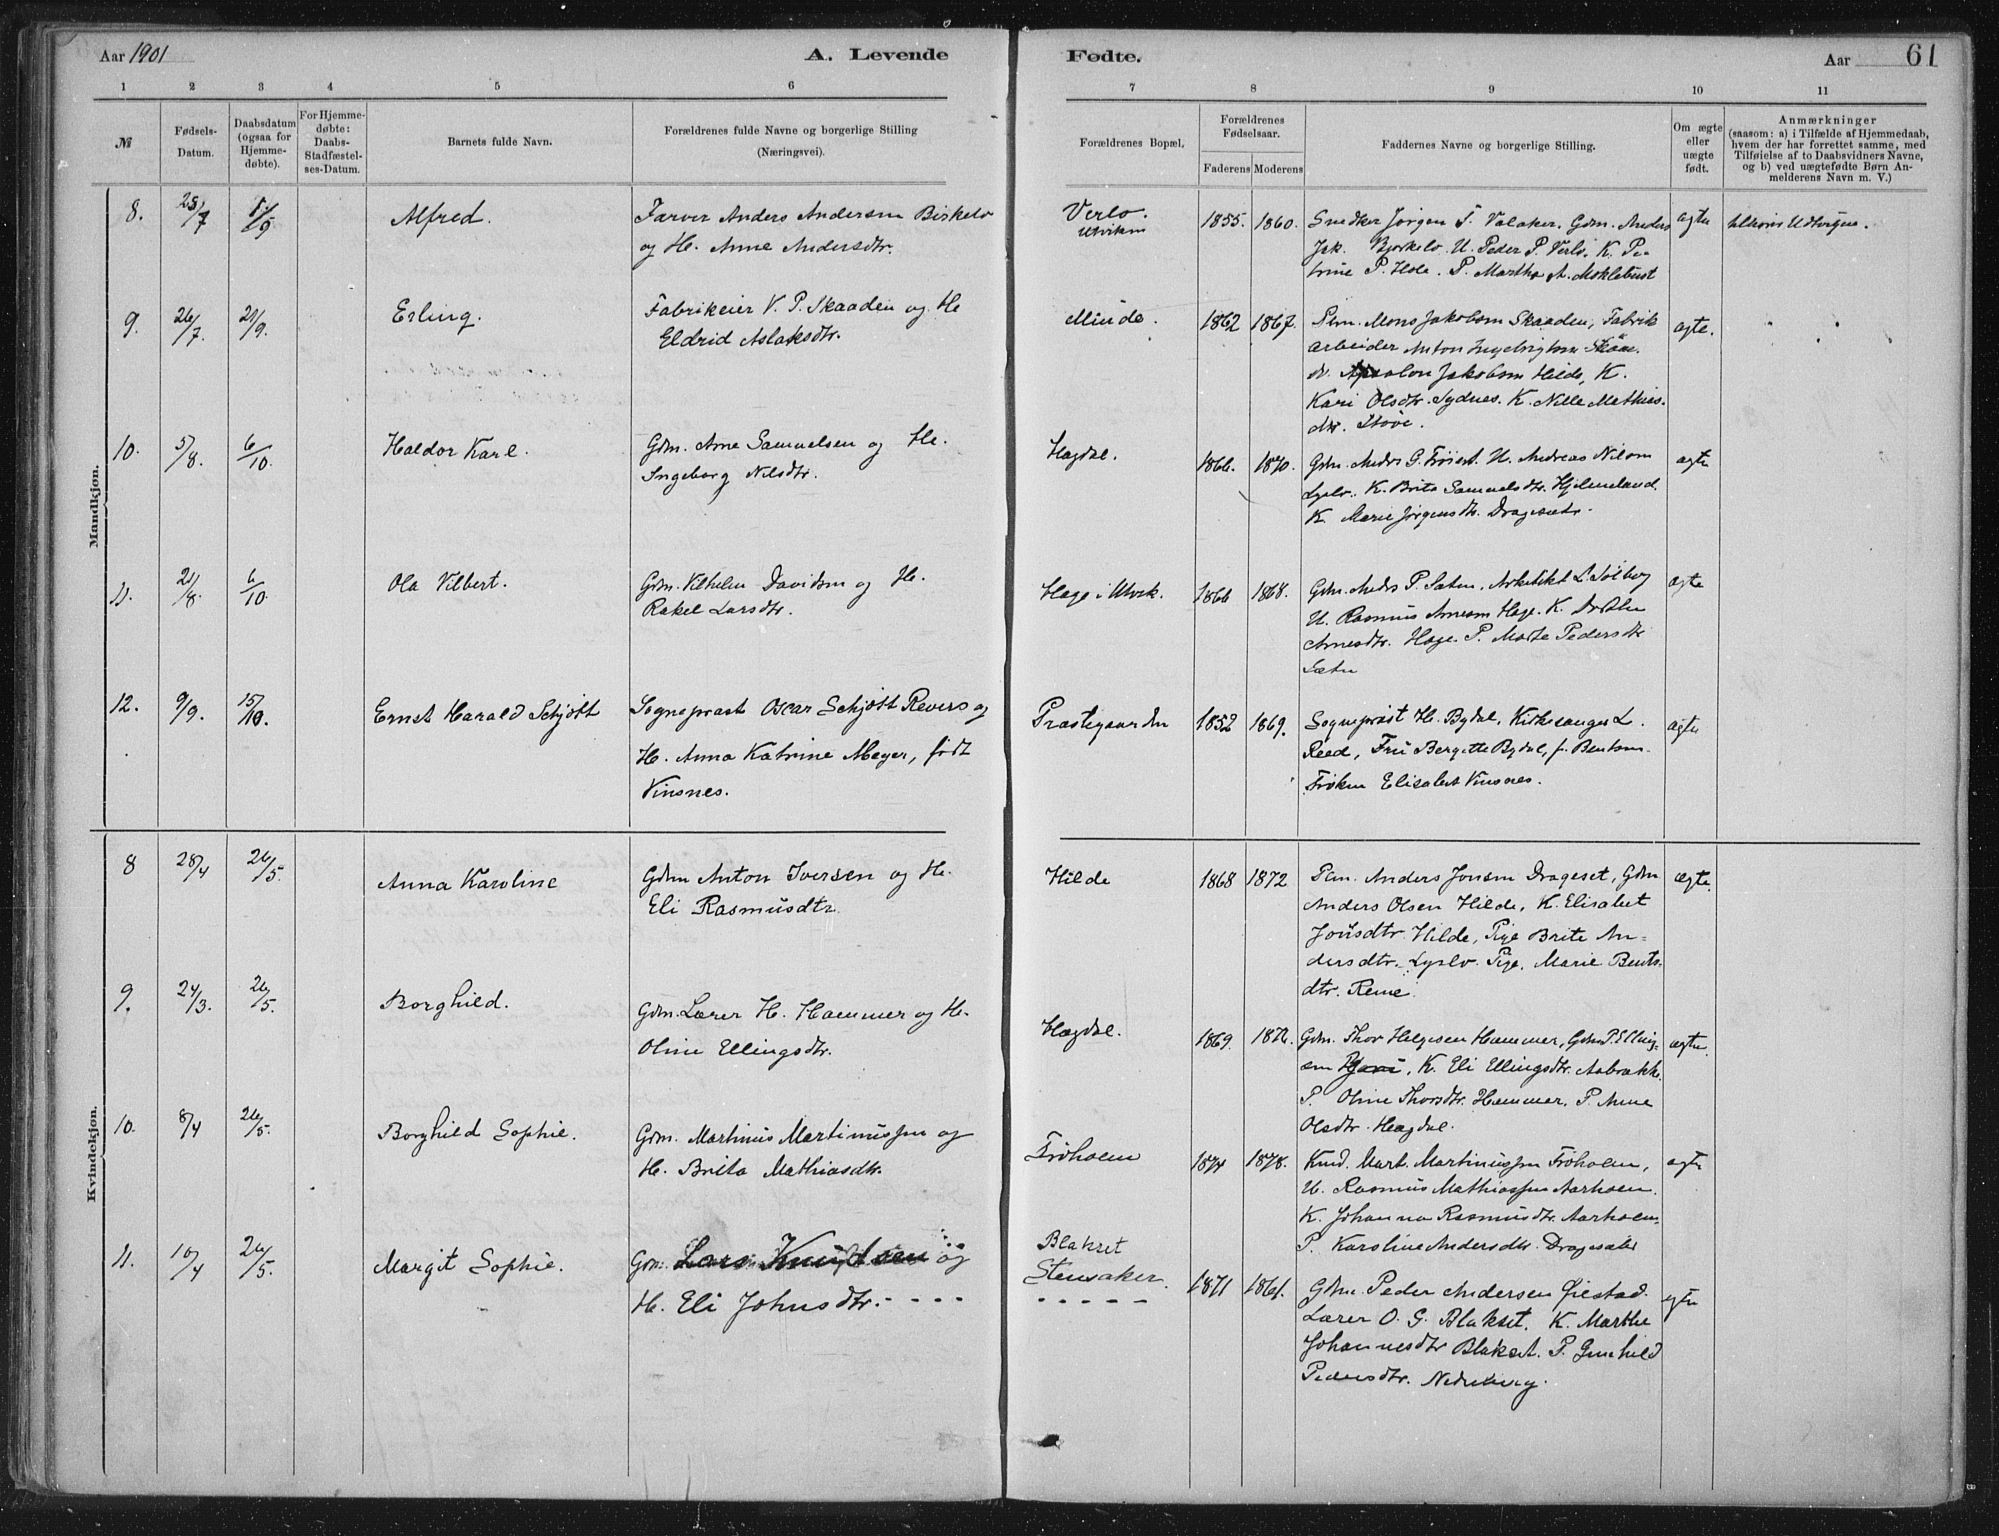 Aar 1901
A. Levende
Fødte.
Aar
61
1 2 3 4 5 6 7 8 9 10 11
№
Fødsels-
Datum.
Daabsdatum
(ogsaa for
Hjemme-
døbte).
For Hjemme-
døbte:
Daabs-
Stadfæstel-
ses-Datum.
Barnets fulde Navn.
Forældrenes fulde Navne og borgerlige Stilling
(Næringsvei).
Forældrenes Bopæl.
Forældrenes
Fødselsaar.
Faderens Moderens
Faddernes Navne og borgerlige Stilling.
Om ægte
eller
uægte
født.
Anmærkninger
(saasom: a) i Tilfælde af Hjemmedaab,
hvem der har forrettet samme, med
Tilføielse af to Daabsvidners Navne,
og b) ved uægtefødte Børn An-
melderens Navn m. V.)
Mandkjøn.
8. Alfred.
Farver Anders Andersen Birkelo
og H. Anne Andersdtr.
Verlo.
Utviken
1855. 1860.
Snedker Jørgen T. Valaker. Gdm. Anders
Jak. Bjørkelo. U. Peder P. Verlo. K. Pe-
trine P. Hole. P. Marthe A. Moklebust
ægte
9. 26/7 29/9 Erling.
Fabrikeier V. P. Skaaden og H
Eldrid Aslaksdtr.
Minde.
1862 1867.
Pem. Mons Jakobsen Skaaden, Fabrik
arbeider Anton
Jakobsen Hilde, K.
Kari Olsdtr. Sydnes. K. Nille Mathias-
dtr.
ægte.
10. 5/8. 6/10 Haldor Karl.
Gdm. Arne Samuelsen og H.
Ingeborg Nilsdtr.
Hagdal.
1866. 1870.
Gdm. Anders G. U. Andreas Nilsen
Lyslo. K. Brita Samuelsdtr. Hjelmeland.
K. Marie Jørgensdtr. Dragesæter.
ægte
11. 21/8. 6/10 Ola Vilbert.
Gdm. Vilhelm Davidsen og H.
Rakel Larsdtr.
Hage i Utvik.
1866 1868.
Gdm. Anders P. Sæten, Arkitekt L. Solberg
U. Rasmus Arnesen Hage. K.
Arnesdtr. Hage. P. Marte Pedersdtr
Sæten
ægte
12. 9/9. 15/10. Ernst Harald Schjøtt
Sogneprest Oscar Schjøtt Revers og
H. Anna Katrine Meyer, født
Vinsnes.
Præstegaarden
1852 1869.
Sogneprest H. Bydal, Kirkesanger L.
Reed, Fru Bergette Bydal, f. Bentsen
Frøken Elisabet Vinsnes.
ægte
Kvindekjøn.
8 28/4 26/5. Anna Karoline
Gdm Anton Iversen og H.
Eli Rasmusdtr
Hilde
1868 1872
Pem. Anders Jonsen Drageset, Gdm
Anders Olsen Hilde, K. Elisabet
Jonsdtr. Hilde, Pige Brite An-
dersdtr. Lyslo. Pige. Marie Bents-
dtr. Reme.
ægte.
9. 24/3. 26/5. Borghild.
Gdm. Lærer H. Hammer og H.
Oline Ellingsdtr.
Hagdal.
1869.
Gdm. Thor Helgesen Hammer, Gdm P. Elling-
sen K. Eli Ellingsdtr. Aabrække.
P. Oline Thorsdtr. Hammer. P. Anne
Olsdtr. Hagdal.
ægte.
10. 8/4 26/5. Borghild Sophie.
Gdm. Martinus Martinussen og
H. Brita Mathiasdtr.
Frøholm
1874 1878.
Knud. Mart. Martinussen Frøholm,
U. Rasmus Mathiassen Aarholm.
K. Johanna Rasmusdtr. Aarholm.
P. Karoline Andersdtr. Dragesæter
ægte
11. 10/4 26/5. Margit Sophie.
Gdm. Lars Knudsen og
H. Eli Johnsdtr.
Blakset
Stensaker.
1871 1861.
Gdm. Peder Andersen Øiestad.
Lærer O. G. Blakset. K. Marthe
Johannesdtr Blakset. P. Gunhild
Pedersdtr. Nedreberg.
ægte